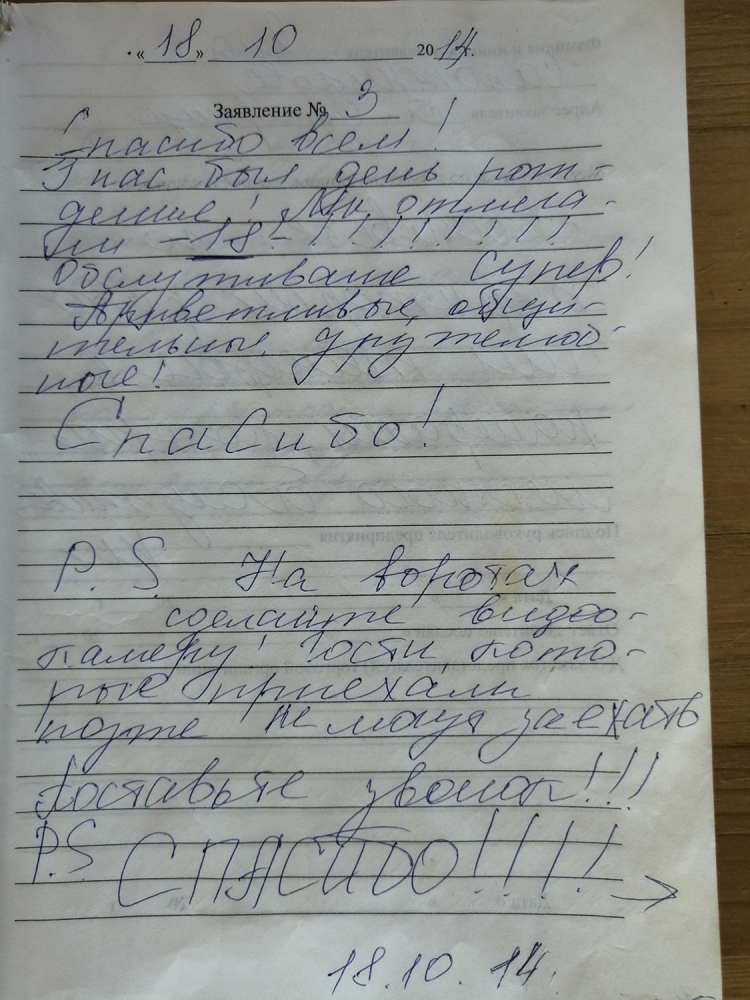 «18» 10 2014г.
Заявление № 3
Спасибо всем!
У нас был день рож-
дение! Мы отмеча-
ли -18-!!!!!!!!
Обслуживание Супер!
Приветливые, общи-
тельные, дружелюб-
ные!
Спасибо!
P.S. На воротах
сделайте видео-
камеру! Гости, кото-
рые приехали
позже не могут заехать
Поставьте звонок!!!
P.S СПАСИБО!!!!
18.10.14.